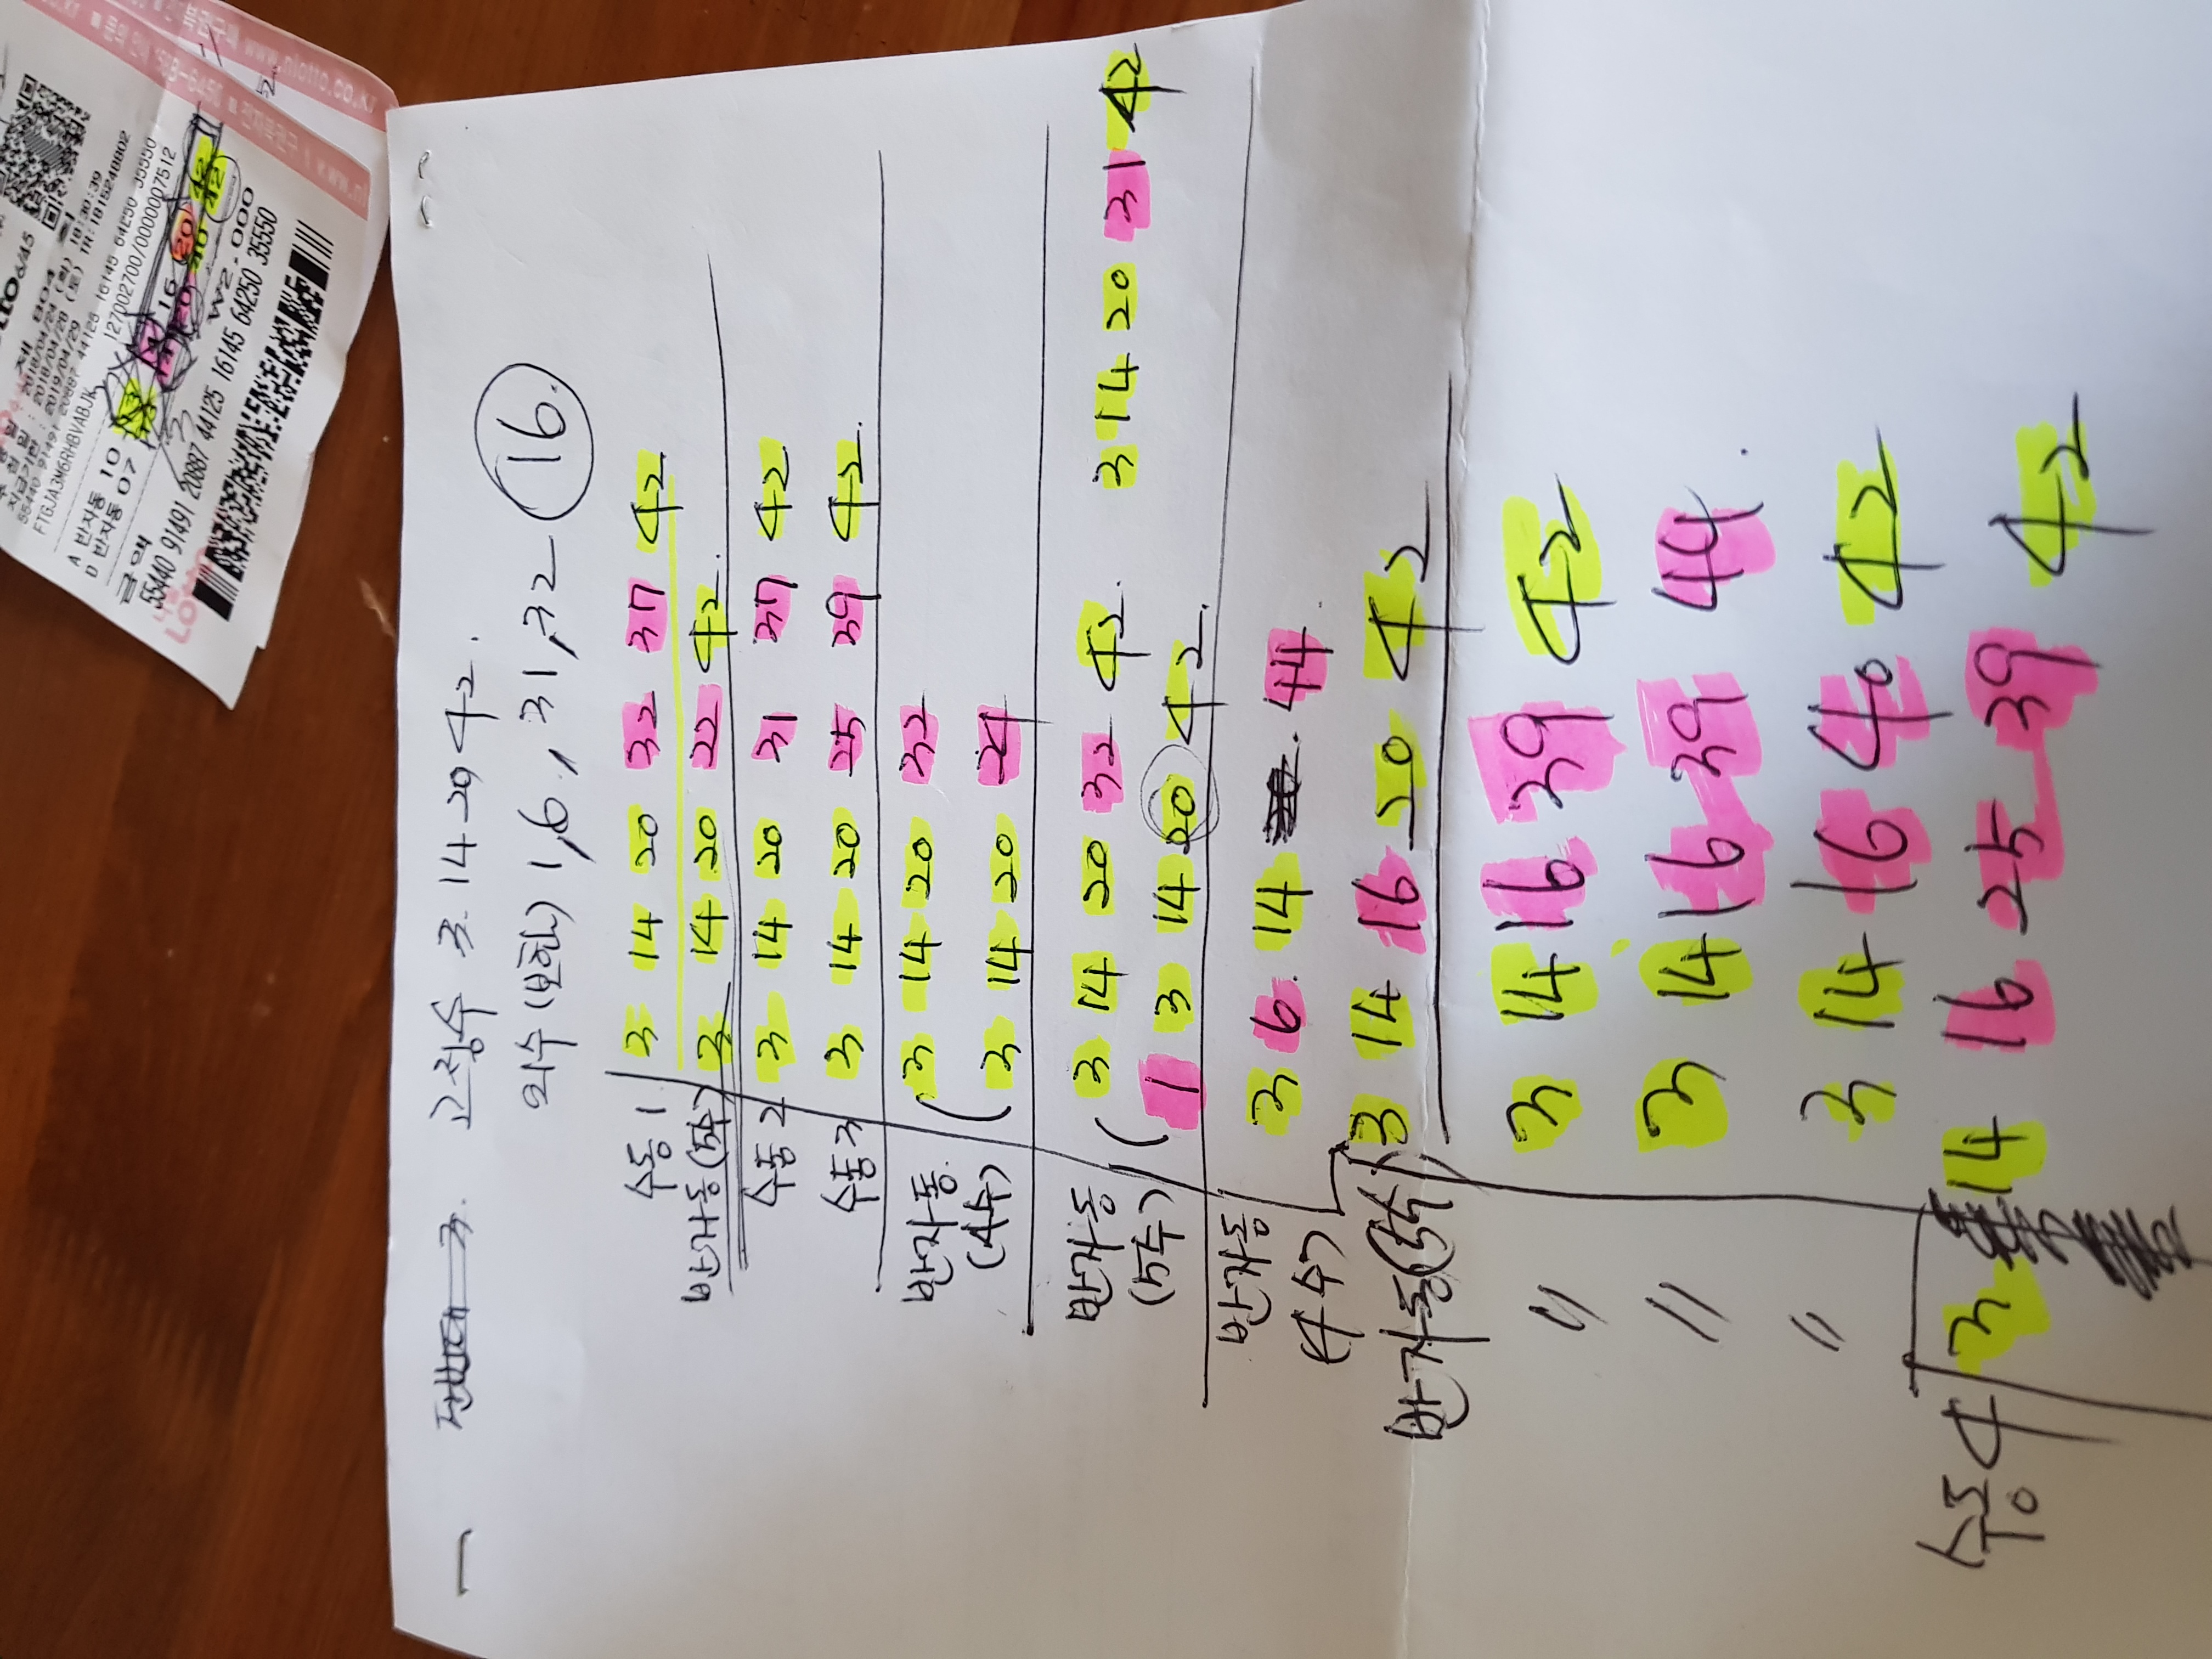 고정수 3. 14 20 42.
외수(변환) 1, 6, 31, 32 16.
수동1 3 14 20 32 37 42
반자동(5수) 3 14 20 22 42.
수동2 3 14 20 31 37 42
수동3 3 14 20 25 39 42.
반자동 (4수) 3 14 20 32
3 14 20 24
반자동 (5수) 3 14 20 32 42. 3 14 20 31 42
1 3 14 20 42.
반자동 (4수) 3 6. 14 . 44
반자동(5수) 3 14 16 20 42
〃 3 14 16 39 42
〃 3 14 16 39 44
〃 3 14 16 40 42
수동4 3 14 16 25 39 42
제 804
2018/04/24 (화) 18:30:39
2018/04/28 (토)
TR:1815248802
2019/04/29
127002700/0000007512
A 반자동 10
D 반자동 07
금액 ₩2,000
55440 91491 20887 44125 16145 64250 35550
www.nlotto.co.kr